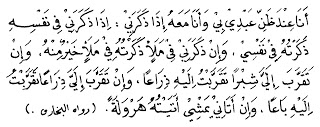 أَنَا عِنْدَ ظَنِّ عَبْدِي بِي وَأَنَا مَعَهُ إِذَا ذَكَرَنِي : إِذَا ذَكَرَنِي فِي نَفْسِهِ
ذَكَرْتُهُ فِي نَفْسِي . وَإِنْ ذَكَرَنِي فِي مَلَأٍ ذَكَرْتُهُ فِي مَلَأٍ خَيْرٍ مِنْهُ . وَإِنْ
تَقَرَّبَ إِلَيَّ شِبْرًا تَقَرَّبْتُ إِلَيْهِ ذِرَاعًا . وَإِنْ تَقَرَّبَ إِلَيَّ ذِرَاعًا تَقَرَّبْتُ
إِلَيْهِ بَاعًا . وَإِنْ أَتَانِي بِمَشْيٍ أَتَيْتُهُ هَرْوَلَةً . ( رواه البخاري . )